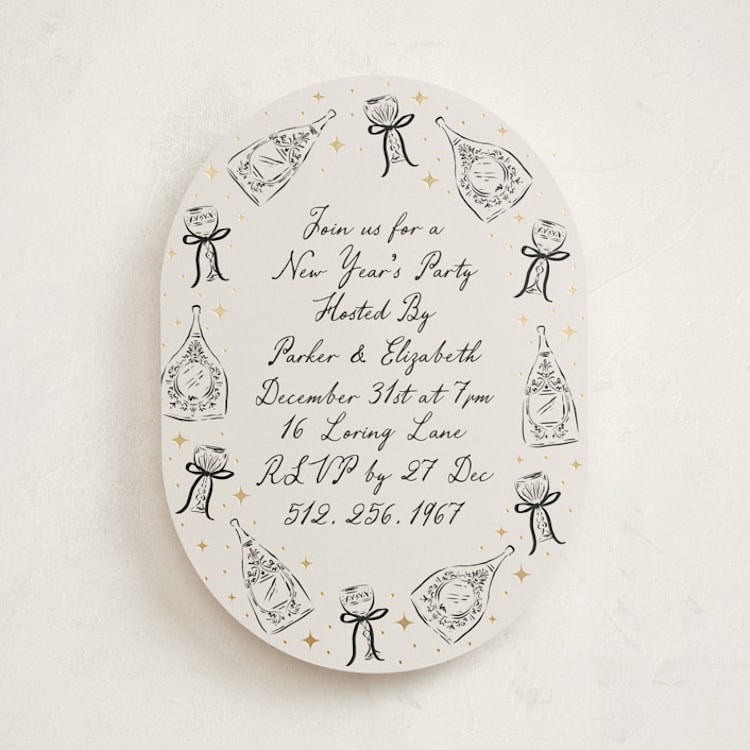 Join us for a
New Year's Party
Hosted By
Parker & Elizabeth
December 31st at 7pm
16 Loring Lane
RSVP by 27 Dec
512.256.1967